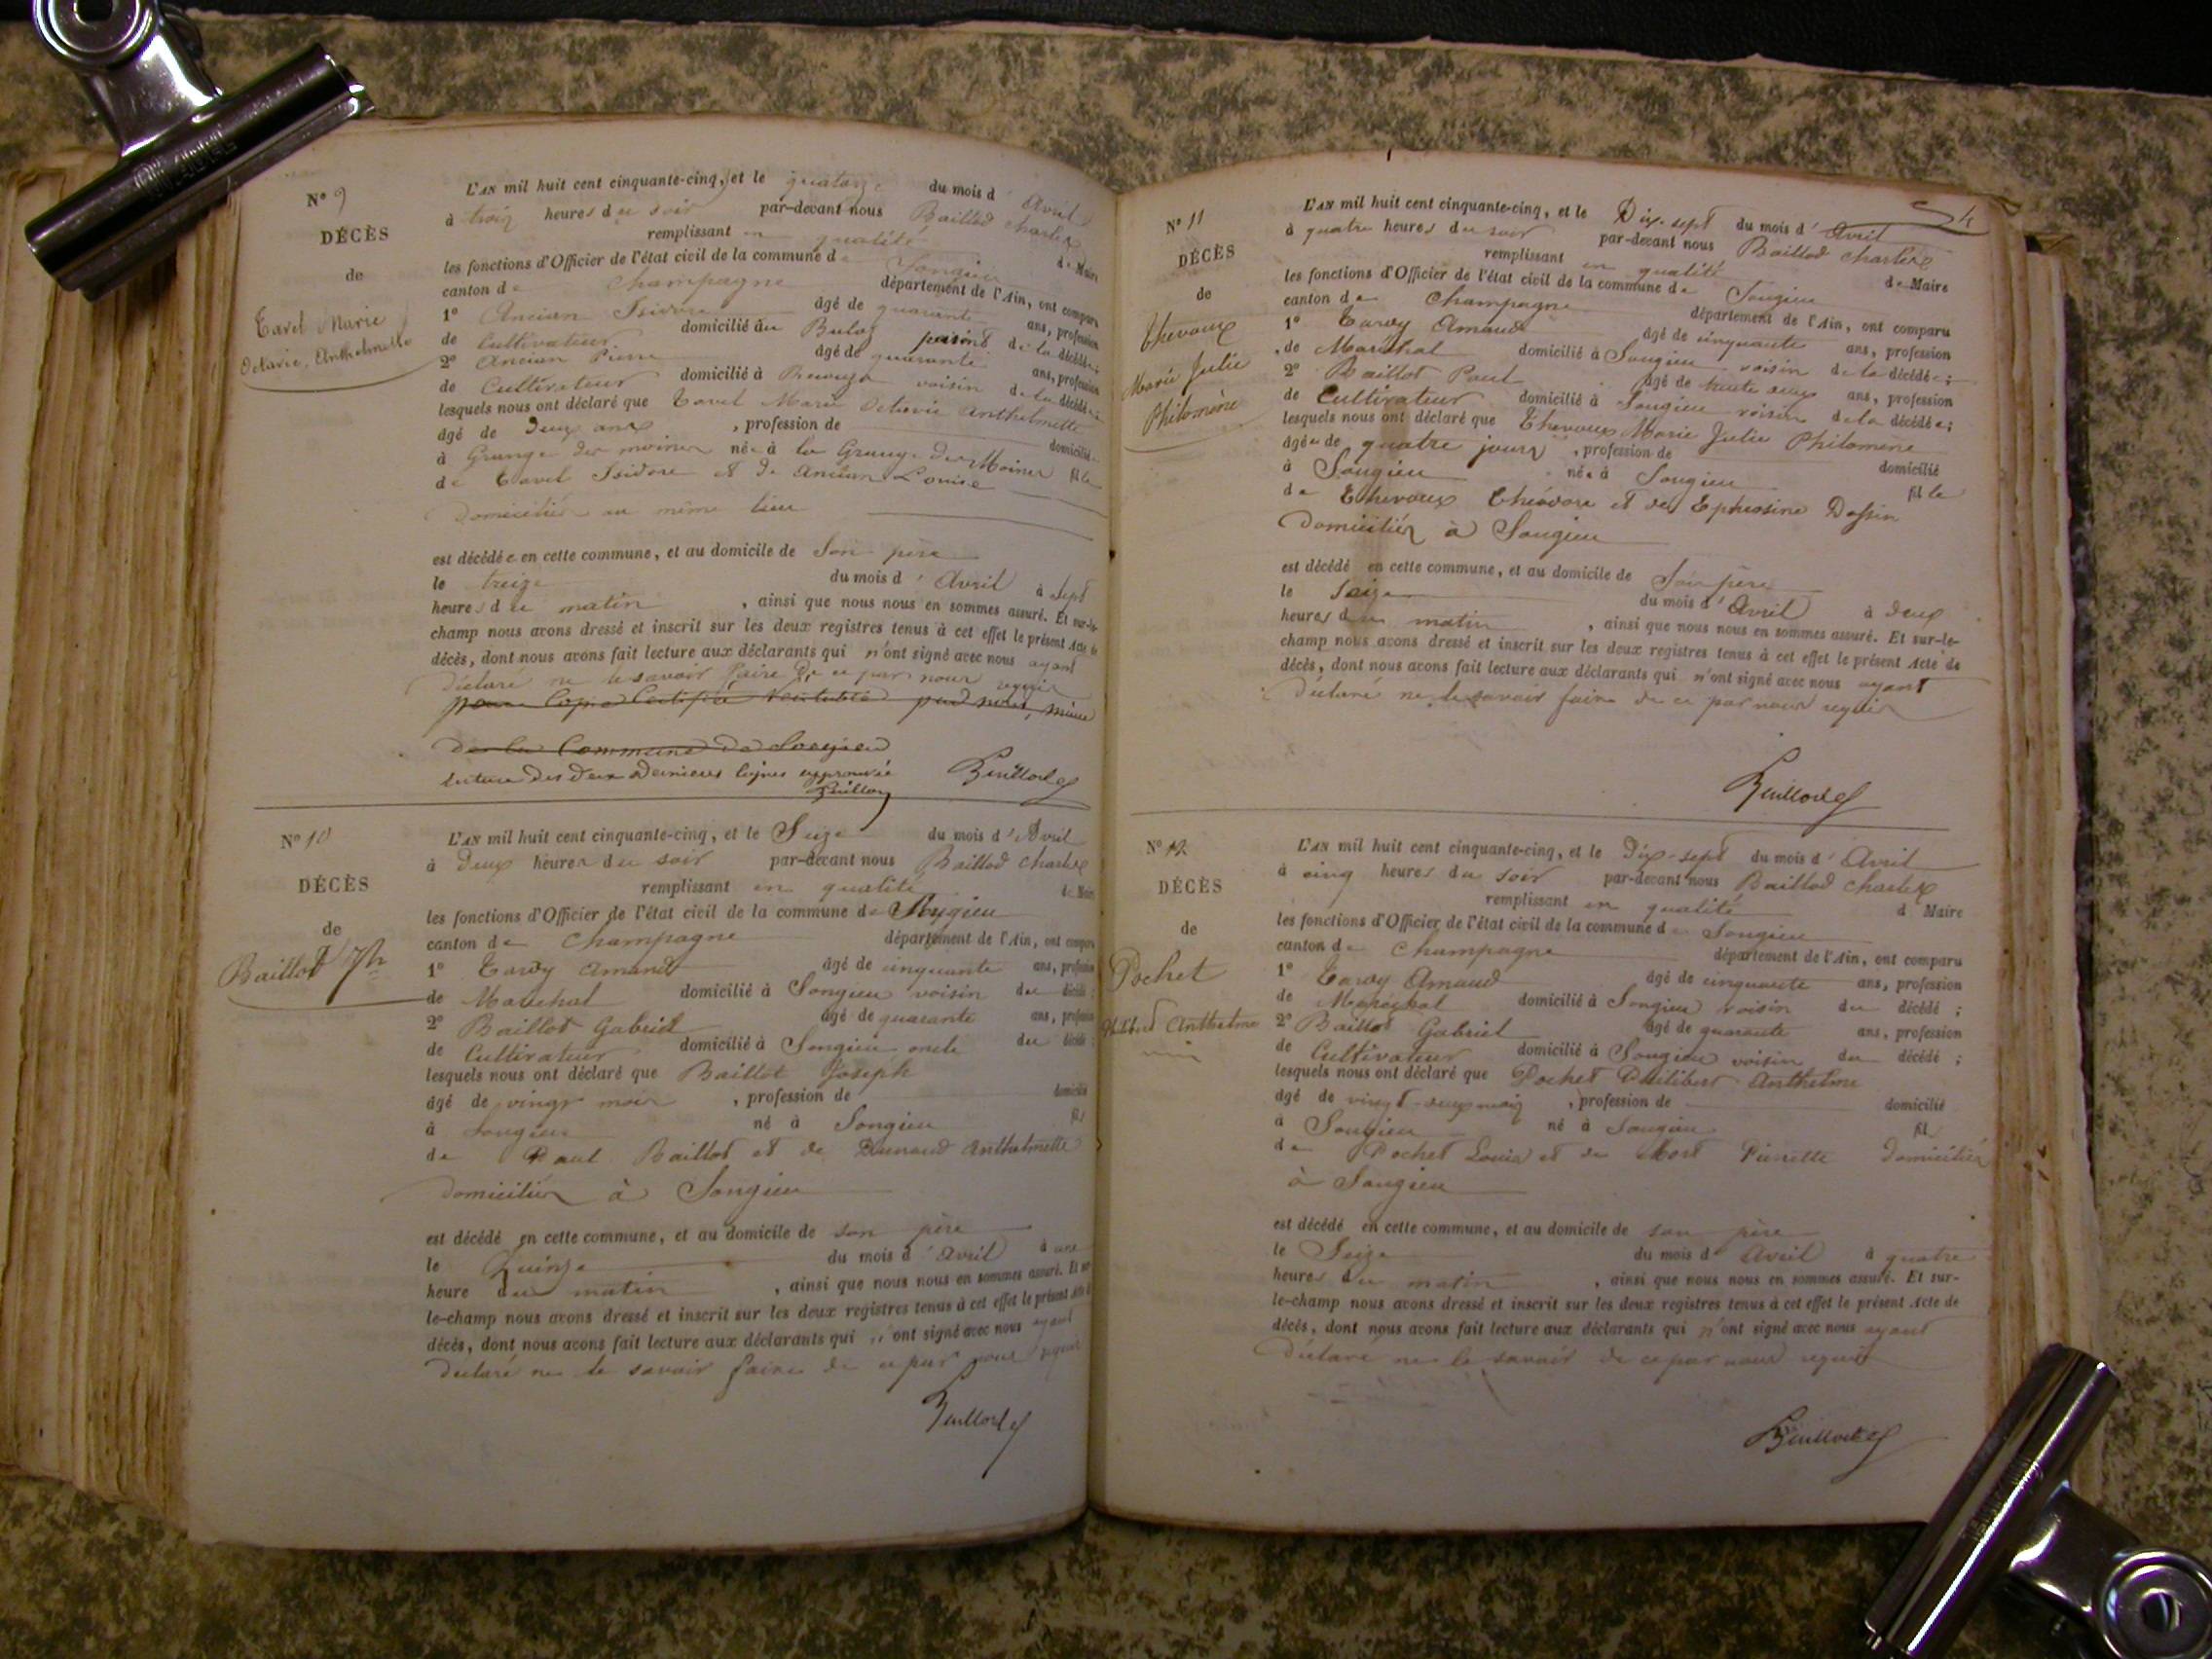 N° 9
DÉCÈS
de
Tavel Marie
Octavie, Anthelmette
L'AN mil huit cent cinquante-cinq, et le quatorze du mois d'Avril
à trois heures du soir par-devant nous Baillod Charles
remplissant en qualité de Maire
les fonctions d'Officier de l'état civil de la commune de Songieu
canton de Champagne département de l'Ain, ont comparu
1° Ancian Isidore âgé de quarante ans, profession
de Cultivateur domicilié au de la décédée;
2° Ancian Pierre âgé de quarante ans, profession
de Cultivateur domicilié à voisin de la décédée
lesquels nous ont déclaré que Tavel Marie Octavie Anthelmette
âgé de deux ans , profession de domicilié
à Grange des moines née à la Grange des Moines fille
de Tavel Isidore et de Ancian Louise
Domiciliés au même lieu
est décédée en cette commune, et au domicile de Son père
le treize du mois d'Avril à Sept
heures du matin , ainsi que nous nous en sommes assuré. Et sur-le-
champ nous avons dressé et inscrit sur les deux registres tenus à cet effet le présent Acte de
décès, dont nous avons fait lecture aux déclarants qui n'ont signé avec nous ayant
Déclaré ne le savoir faire De ce par nous requis
pour Copie Certifiée véritable par nous, maire
de la Commune de Songieu
lecture des deux dernieres lignes approuvée
Baillod
N° 10
DÉCÈS
de
Baillot Jph
L'AN mil huit cent cinquante-cinq, et le Seize du mois d'Avril
à Deux heures du soir par-devant nous Baillod Charles
remplissant en qualité de Maire
les fonctions d'Officier de l'état civil de la commune de Songieu
canton de Champagne département de l'Ain, ont comparu
1° Tardy Amand âgé de cinquante ans, profession
de Maréchal domicilié à Songieu voisin du décédé;
2° Baillot Gabriel âgé de quarante ans, profession
de Cultivateur domicilié à Songieu oncle du décédé;
lesquels nous ont déclaré que Baillot Joseph
âgé de vingt mois , profession de domicilié
à Songieu né à Songieu fils
de Paul Baillot et de Anthelmette
Domiciliés à Songieu
est décédé en cette commune, et au domicile de son père
le Quinze du mois d'Avril à une
heure du matin , ainsi que nous nous en sommes assuré. Et sur-
le-champ nous avons dressé et inscrit sur les deux registres tenus à cet effet le présent Acte de
décès, dont nous avons fait lecture aux déclarants qui n'ont signé avec nous ayant
Déclaré ne le savoir faire de ce par nous requis
Baillod
N° 11
DÉCÈS
de
Thevoux
Marie Julie
Philomène
L'AN mil huit cent cinquante-cinq, et le Dix-sept du mois d'Avril
à quatre heures du soir par-devant nous Baillod Charles
remplissant en qualité de Maire
les fonctions d'Officier de l'état civil de la commune de Songieu
canton de Champagne département de l'Ain, ont comparu
1° Tardy Amand âgé de cinquante ans, profession
de Maréchal domicilié à Songieu voisin de la décédée;
2° Baillot Paul âgé de trente deux ans, profession
de Cultivateur domicilié à Songieu voisin de la décédée;
lesquels nous ont déclaré que Thevoux Marie Julie Philomene
âgée de quatre jours , profession de domicilié
à Songieu née à Songieu fille
de Thevoux Théodore et de Ephrosine Dassin
Domiciliés à Songieu
est décédé en cette commune, et au domicile de Son père
le Seize du mois d'Avril à deux
heures du matin , ainsi que nous nous en sommes assuré. Et sur-le-
champ nous avons dressé et inscrit sur les deux registres tenus à cet effet le présent Acte de
décès, dont nous avons fait lecture aux déclarants qui n'ont signé avec nous ayant
Déclaré ne le savoir faire de ce par nous requis
Baillod
N° 12
DÉCÈS
de
Pochet
Philibert Anthelme
L'AN mil huit cent cinquante-cinq, et le Dix-sept du mois d'Avril
à cinq heures du soir par-devant nous Baillod Charles
remplissant en qualité d Maire
les fonctions d'Officier de l'état civil de la commune de Songieu
canton de Champagne département de l'Ain, ont comparu
1° Tardy Amand âgé de cinquante ans, profession
de Maréchal domicilié à Songieu voisin du décédé;
2° Baillot Gabriel âgé de quarante ans, profession
de Cultivateur domicilié à Songieu voisin du décédé;
lesquels nous ont déclaré que Pochet Philibert Anthelme
âgé de vingt-deux mois , profession de domicilié
à Songieu né à Songieu fils
de Pochet Louis et de Mort Pierrette Domiciliés
à Songieu
est décédé en cette commune, et au domicile de son père
le Seize du mois d'Avril à quatre
heures du matin , ainsi que nous nous en sommes assuré. Et sur-
le-champ nous avons dressé et inscrit sur les deux registres tenus à cet effet le présent Acte de
décès, dont nous avons fait lecture aux déclarants qui n'ont signé avec nous ayant
Déclaré ne le savoir de ce par nous requis
Baillod